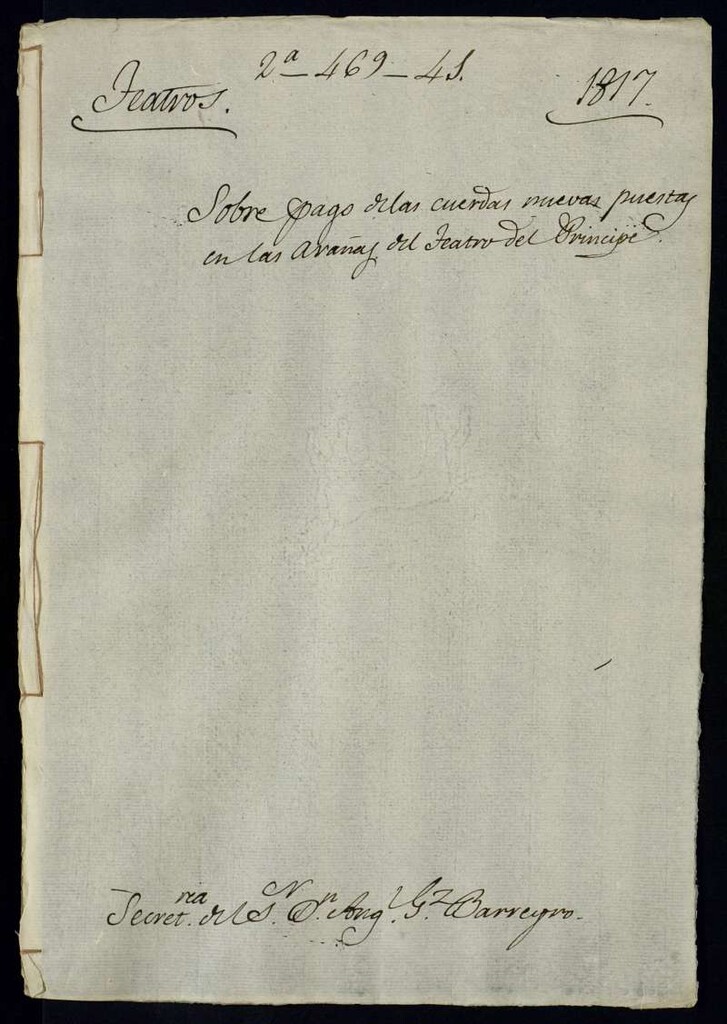 2ª-469-41.
Teatros.
1817.
Sobre pago delas cuerdas nuevas puestas
en las arañas del Teatro del Principe.
Secret.ría del S.r D.n Ang.l G.z Barreyro.